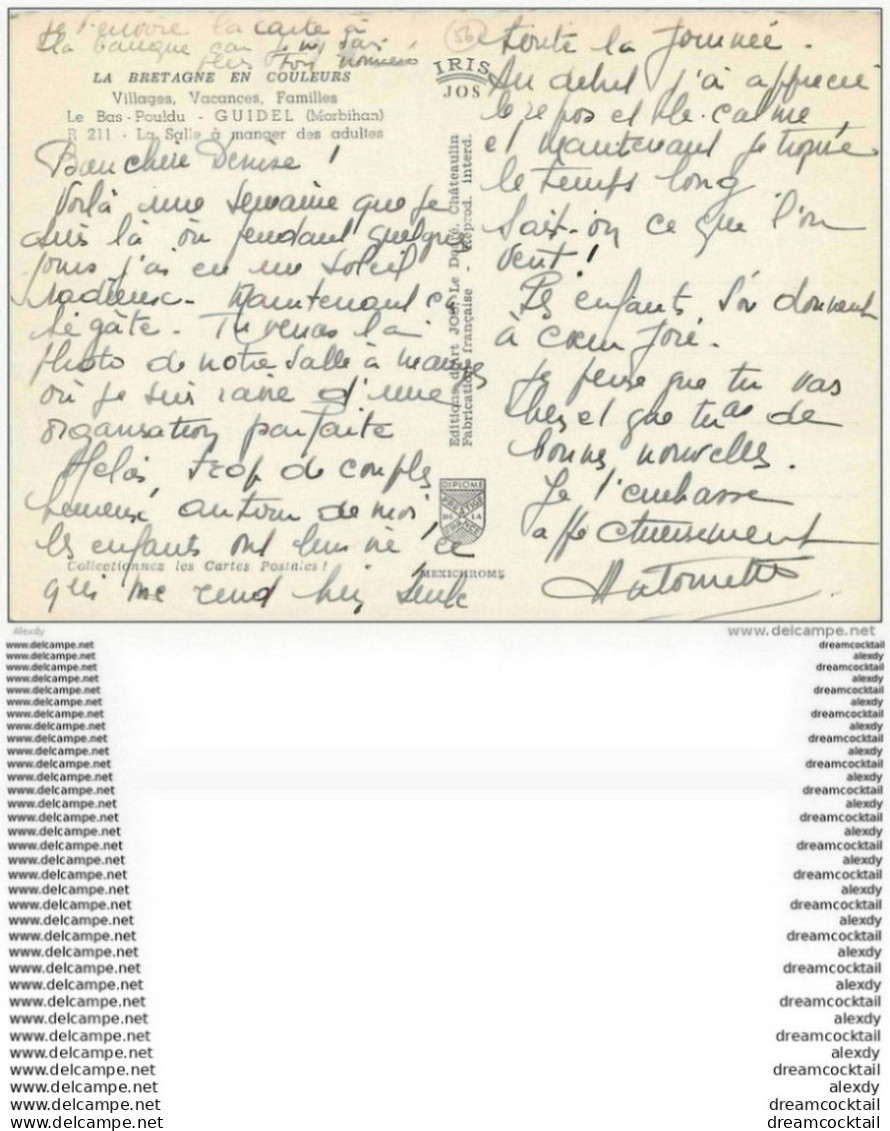 je t'envoie la carte à
la banque car je ne sais
plus ton numéro
LA BRETAGNE EN COULEURS
Villages, Vacances, Familles
Le Bas-Pouldu - GUIDEL (Morbihan)
R 211 - La Salle à manger des adultes
56
IRIS
JOS
Editions d'Art JOS, Le Doaré, Châteaulin
Fabrication française - Reprod. interd.
Bien chère Denise !
Voilà une semaine que je
suis là où pendant quelques
jours j'ai eu un soleil
radieux - Maintenant ça
se gâte - Tu verras la
photo de notre salle à manger
où je suis ravie d'une
organisation parfaite
Hélas, trop de couples
heureux autour de moi
les enfants ont leur vie ce
Collectionnez les Cartes Postales !
qui me rend bien seule
DIPLOME
PRESTIGE
DE LA
FRANCE
MEXICHROME
toute la journée.
Au début j'ai apprécié
le repos et le calme
et maintenant je trouve
le temps long
Sait-on ce que l'on
veut !
Les enfants s'en donnent
à cœur joie.
Je pense que tu vas
bien et que tu as de
bonnes nouvelles.
Je t'embrasse
affectueusement
Antoinette
Alexdy
www.delcampe.net
www.delcampe.net dreamcocktail
www.delcampe.net alexdy
www.delcampe.net dreamcocktail
www.delcampe.net alexdy
www.delcampe.net dreamcocktail
www.delcampe.net alexdy
www.delcampe.net dreamcocktail
www.delcampe.net alexdy
www.delcampe.net dreamcocktail
www.delcampe.net alexdy
www.delcampe.net dreamcocktail
www.delcampe.net alexdy
www.delcampe.net dreamcocktail
www.delcampe.net alexdy
www.delcampe.net dreamcocktail
www.delcampe.net alexdy
www.delcampe.net dreamcocktail
www.delcampe.net alexdy
www.delcampe.net dreamcocktail
www.delcampe.net alexdy
www.delcampe.net dreamcocktail
www.delcampe.net alexdy
www.delcampe.net dreamcocktail
www.delcampe.net alexdy
www.delcampe.net dreamcocktail
www.delcampe.net alexdy
www.delcampe.net dreamcocktail
www.delcampe.net alexdy
www.delcampe.net dreamcocktail
www.delcampe.net alexdy
www.delcampe.net dreamcocktail
www.delcampe.net alexdy
www.delcampe.net dreamcocktail
www.delcampe.net alexdy
www.delcampe.net dreamcocktail
www.delcampe.net dreamcocktail